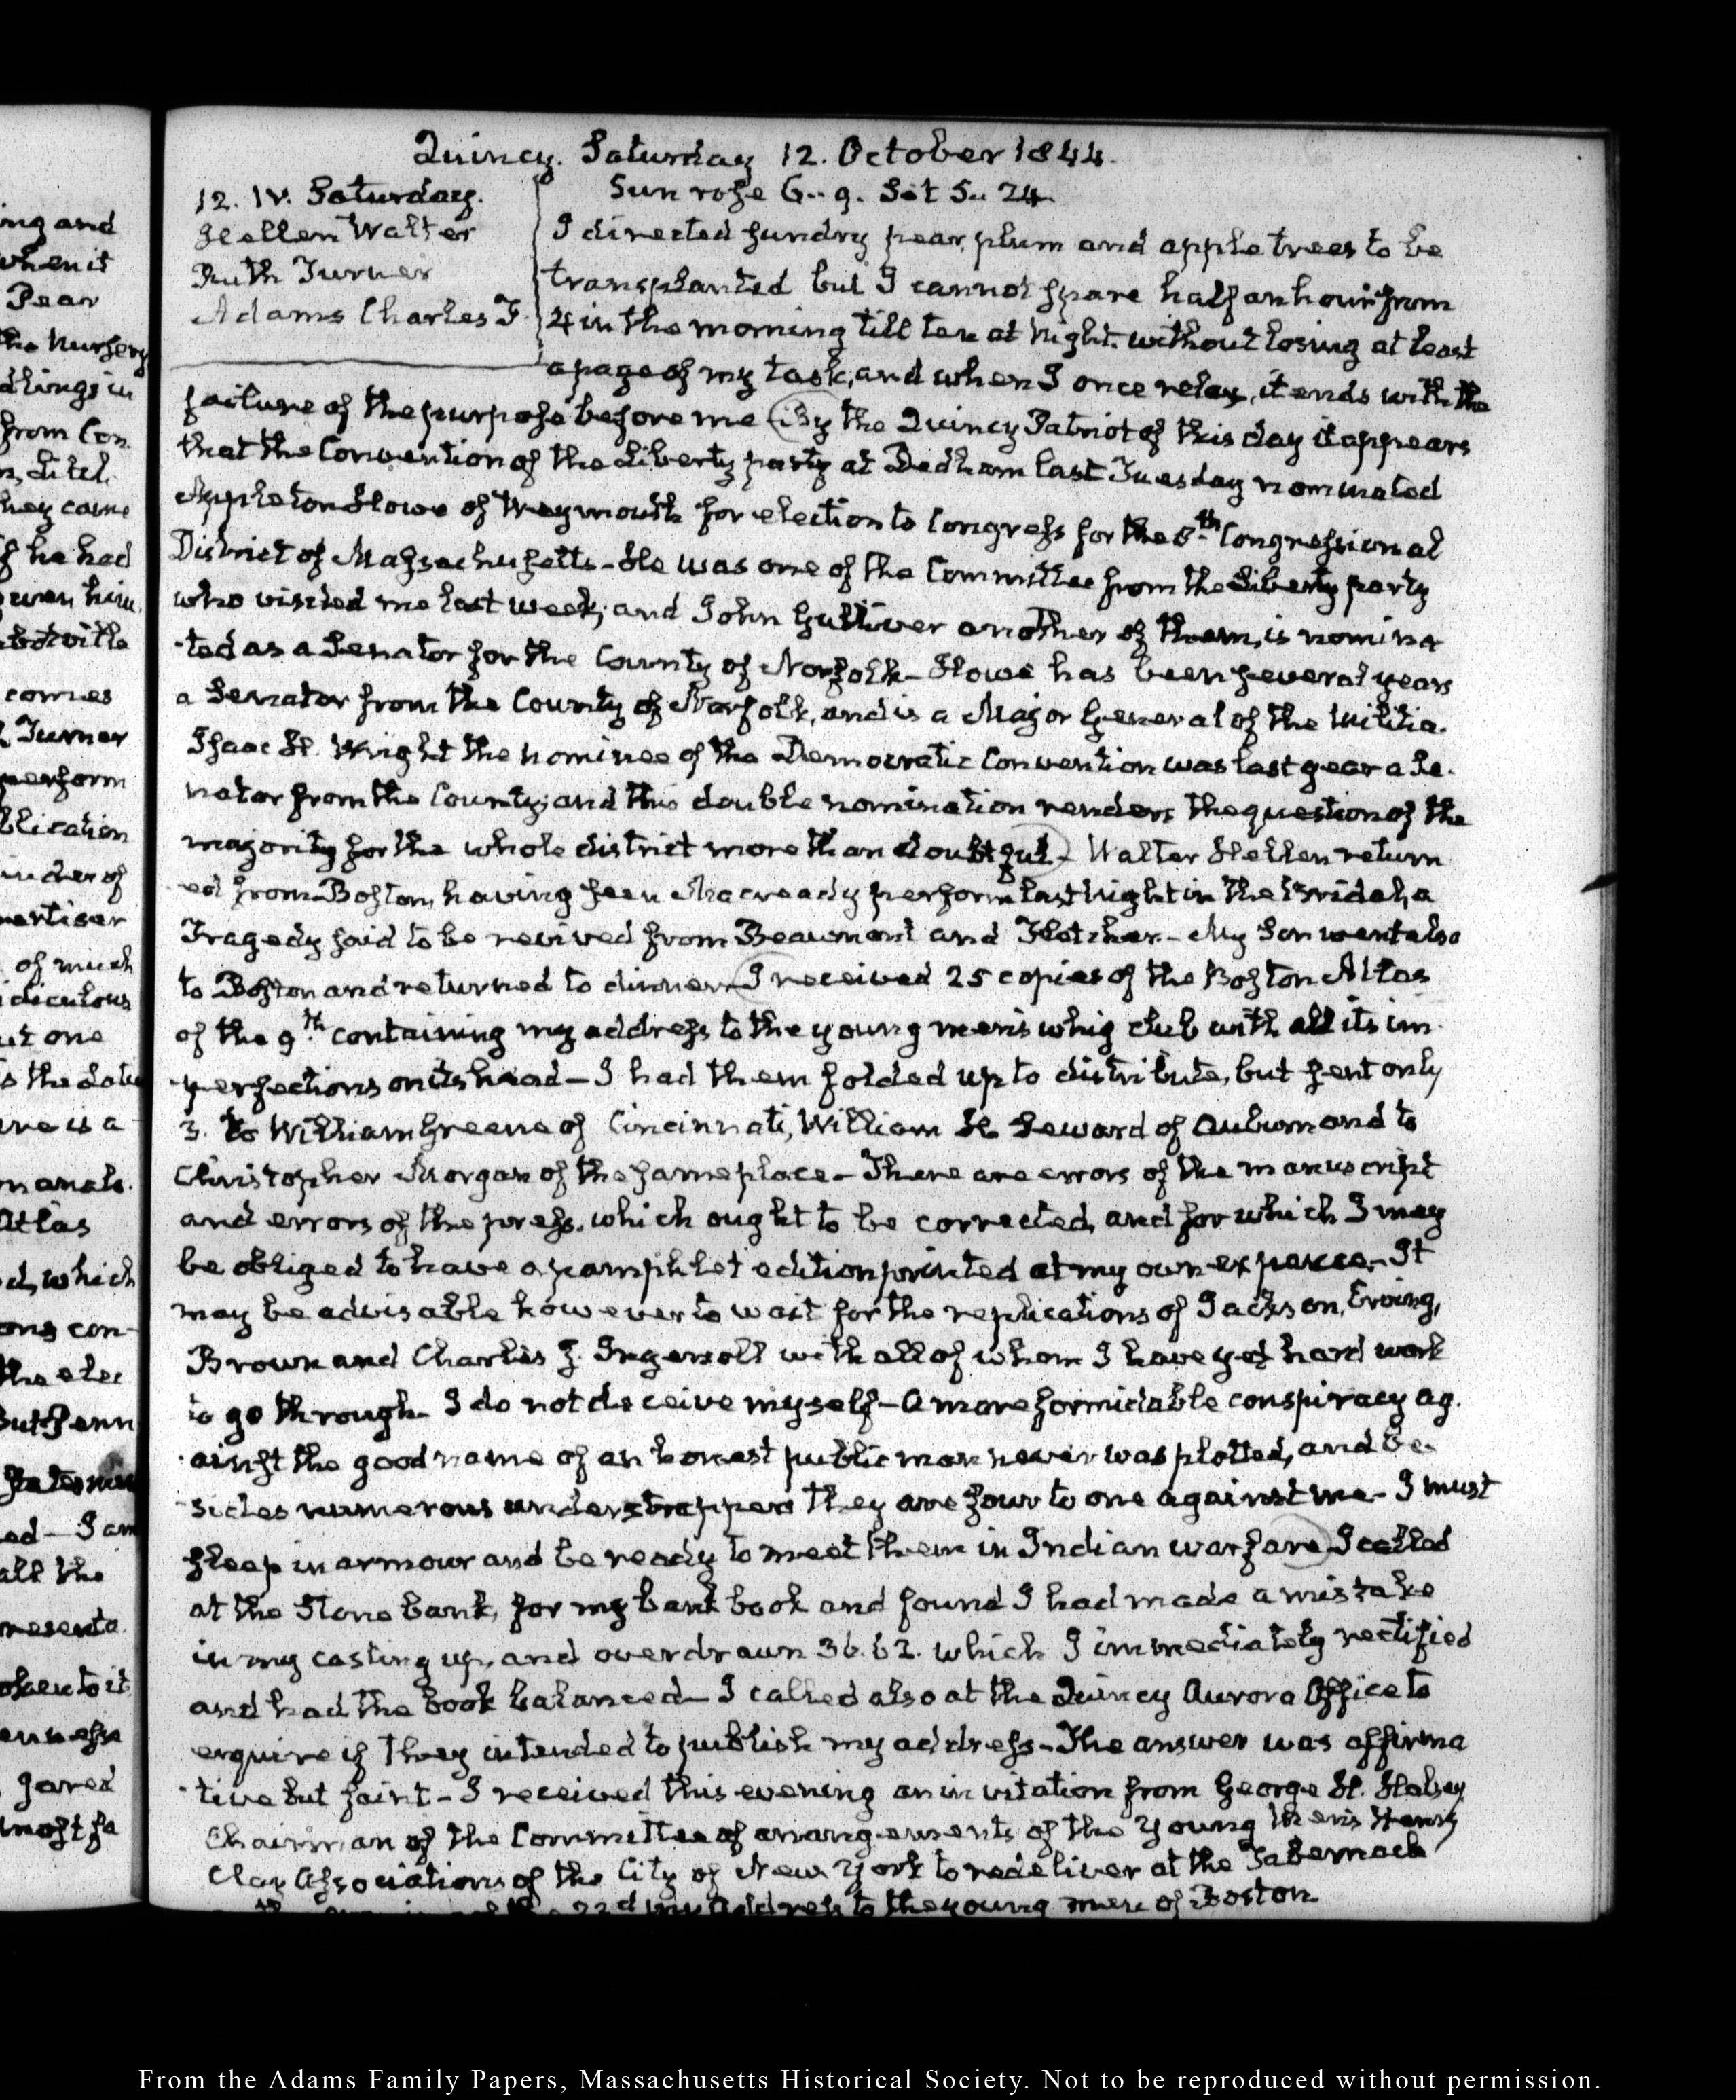 Quincy. Saturday 12. October 1844.
12. IV. Saturday.
Hellen Walter
Ruth Turner
Adams Charles F.
Sun rose 6..9. Set 5..24.
I directed sundry pear, plum and apple trees to be
transplanted but I cannot spare half an hour from
4 in the morning till ten at Night. without losing at least
a page of my task, and when I once relax, it ends with the
failure of the purpose before me By the Quincy Patriot of this day it appears
that the Convention of the Liberty party at Dedham last Tuesday nominated
Appleton Howe of Weymouth for election to Congress for the 8th Congressional
District of Massachusetts - He was one of the Committee from the Liberty party
who visited me last week; and John Gulliver another of them, is nomina
-ted as a Senator for the County of Norfolk - Howe has been several years
a Senator from the County of Norfolk, and is a Major General of the Militia.
Isaac H. Wright the nominee of the Democratic Convention was last year a Se-
nator from the County; and this double nomination renders the question of the
majority for the whole district more than doubtful - Walter Hellen return
-ed from Boston, having seen Macready perform last Night in the Bridal, a
Tragedy said to be revived from Beaumont and Fletcher. - My Son went also
to Boston and returned to dinner - I received 25 copies of the Boston Atlas
of the 9.th containing my address to the young men's whig club with all its im-
-perfections on its head - I had them folded up to distribute, but sent only
3. to William Greene of Cincinnati, William H. Seward of Auburn and to
Christopher Morgan of the same place - There are errors of the manuscript
and errors of the press, which ought to be corrected, and for which I may
be obliged to have a pamphlet edition printed at my own expence. - It
may be advisable however to wait for the replications of Jackson, Erving,
Brown and Charles J. Ingersoll with all of whom I have yet hard work
to go through - I do not deceive myself - A more formidable conspiracy ag-
-ainst the good name of an honest public man never was plotted, and be-
-sides numerous understrappers they are four to one against me - I must
sleep in armour and be ready to meet them in Indian warfare I called
at the Stone bank, for my bank book and found I had made a mistake
in my casting up, and overdrawn 36.62. which I immediately rectified
and had the book balanced - I called also at the Quincy Aurora Office to
enquire if they intended to publish my address - The answer was affirma
-tive but faint - I received this evening an invitation from George H. Halsey
Chairman of the Committee of arrangements of the Young Men's Henry
Clay Associations of the City of New York to redeliver at the Tabernacle
22d my Address to the young men of Boston
ing and
when it
Pear
the Nursery
dlings in
from Con
hey came
if he had
comes
Turner
perform
blication
inder of
vertiser
of much
idiculous
ut one
ere is a
Atlas
d, which
ons con-
the elec
But Penn
ed - I am
all the
presenta
oken to it
Jared
most fa
From the Adams Family Papers, Massachusetts Historical Society. Not to be reproduced without permission.